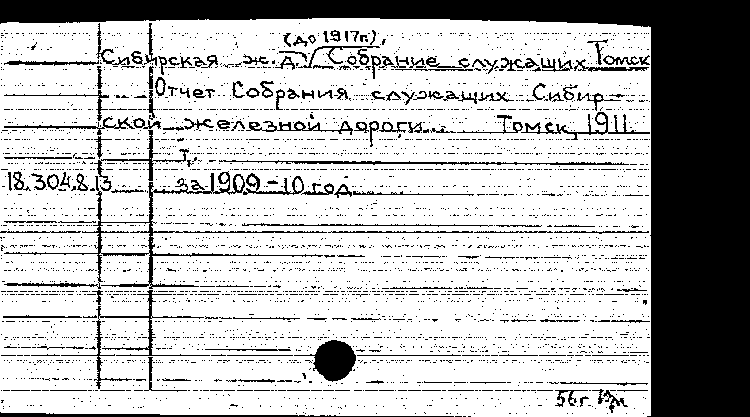 (до 1917г.),
Сибирская ж.д. Собрание служащих Томск
Отчет Собрания служащих Сибир-
ской железной дороги... Томск, 1911.
Т.
18.304.8.13 за 1909-10 год
56г.